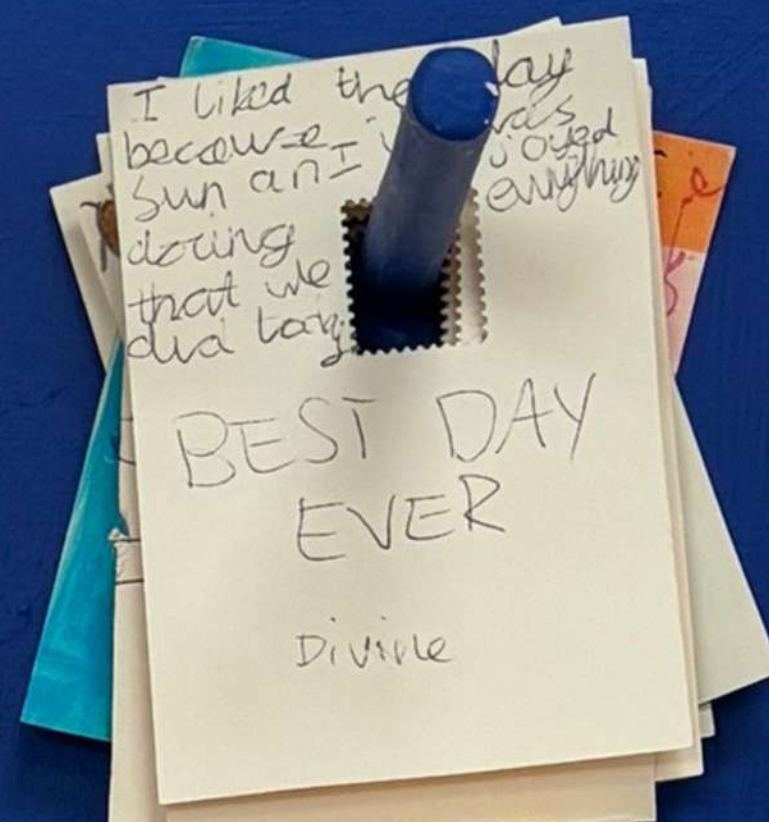 I liked the day
because i vas
sun an I joyed
doring enything
that we
did
BEST DAY
EVER
Divine